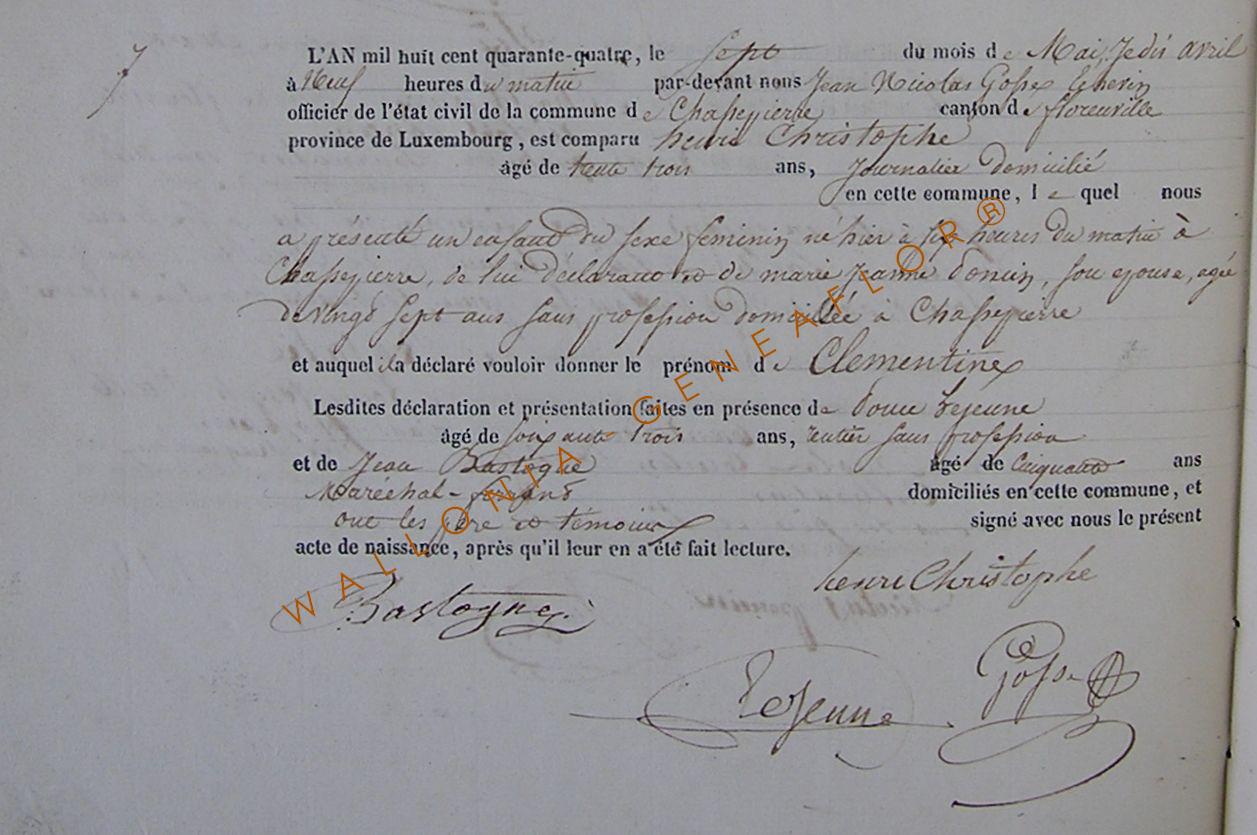 7
L'AN mil huit cent quarante-quatre, le Sept du mois de Mai, Je dis avril
à Neuf heures du matin par-devant nous Jean Nicolas Gosse Echevin
officier de l'état civil de la commune de Chassepierre canton de florenville
province de Luxembourg, est comparu henri Christophe
âgé de trente trois ans, Journalier domicilié
en cette commune, lequel nous
a présenté un enfant du sexe feminin né hier à six heures du matin à
Chassepierre, de lui déclarant et de marie Jeanne, son epouse, agée
de vingt sept ans sans profession domiciliée à Chassepierre
et auquel il a déclaré vouloir donner le prénom de Clementine
Lesdites déclaration et présentation faites en présence de Lejeune
âgé de soixante trois ans, rentier sans profession
et de Jean Bastogne âgé de Cinquante ans
Maréchal-ferrand domiciliés en cette commune, et
ont les père et témoins signé avec nous le présent
acte de naissance, après qu'il leur en a été fait lecture.
henri Christophe
Bastogne
Lejeune
Gosse
WALLONIA GENEAFLOR®